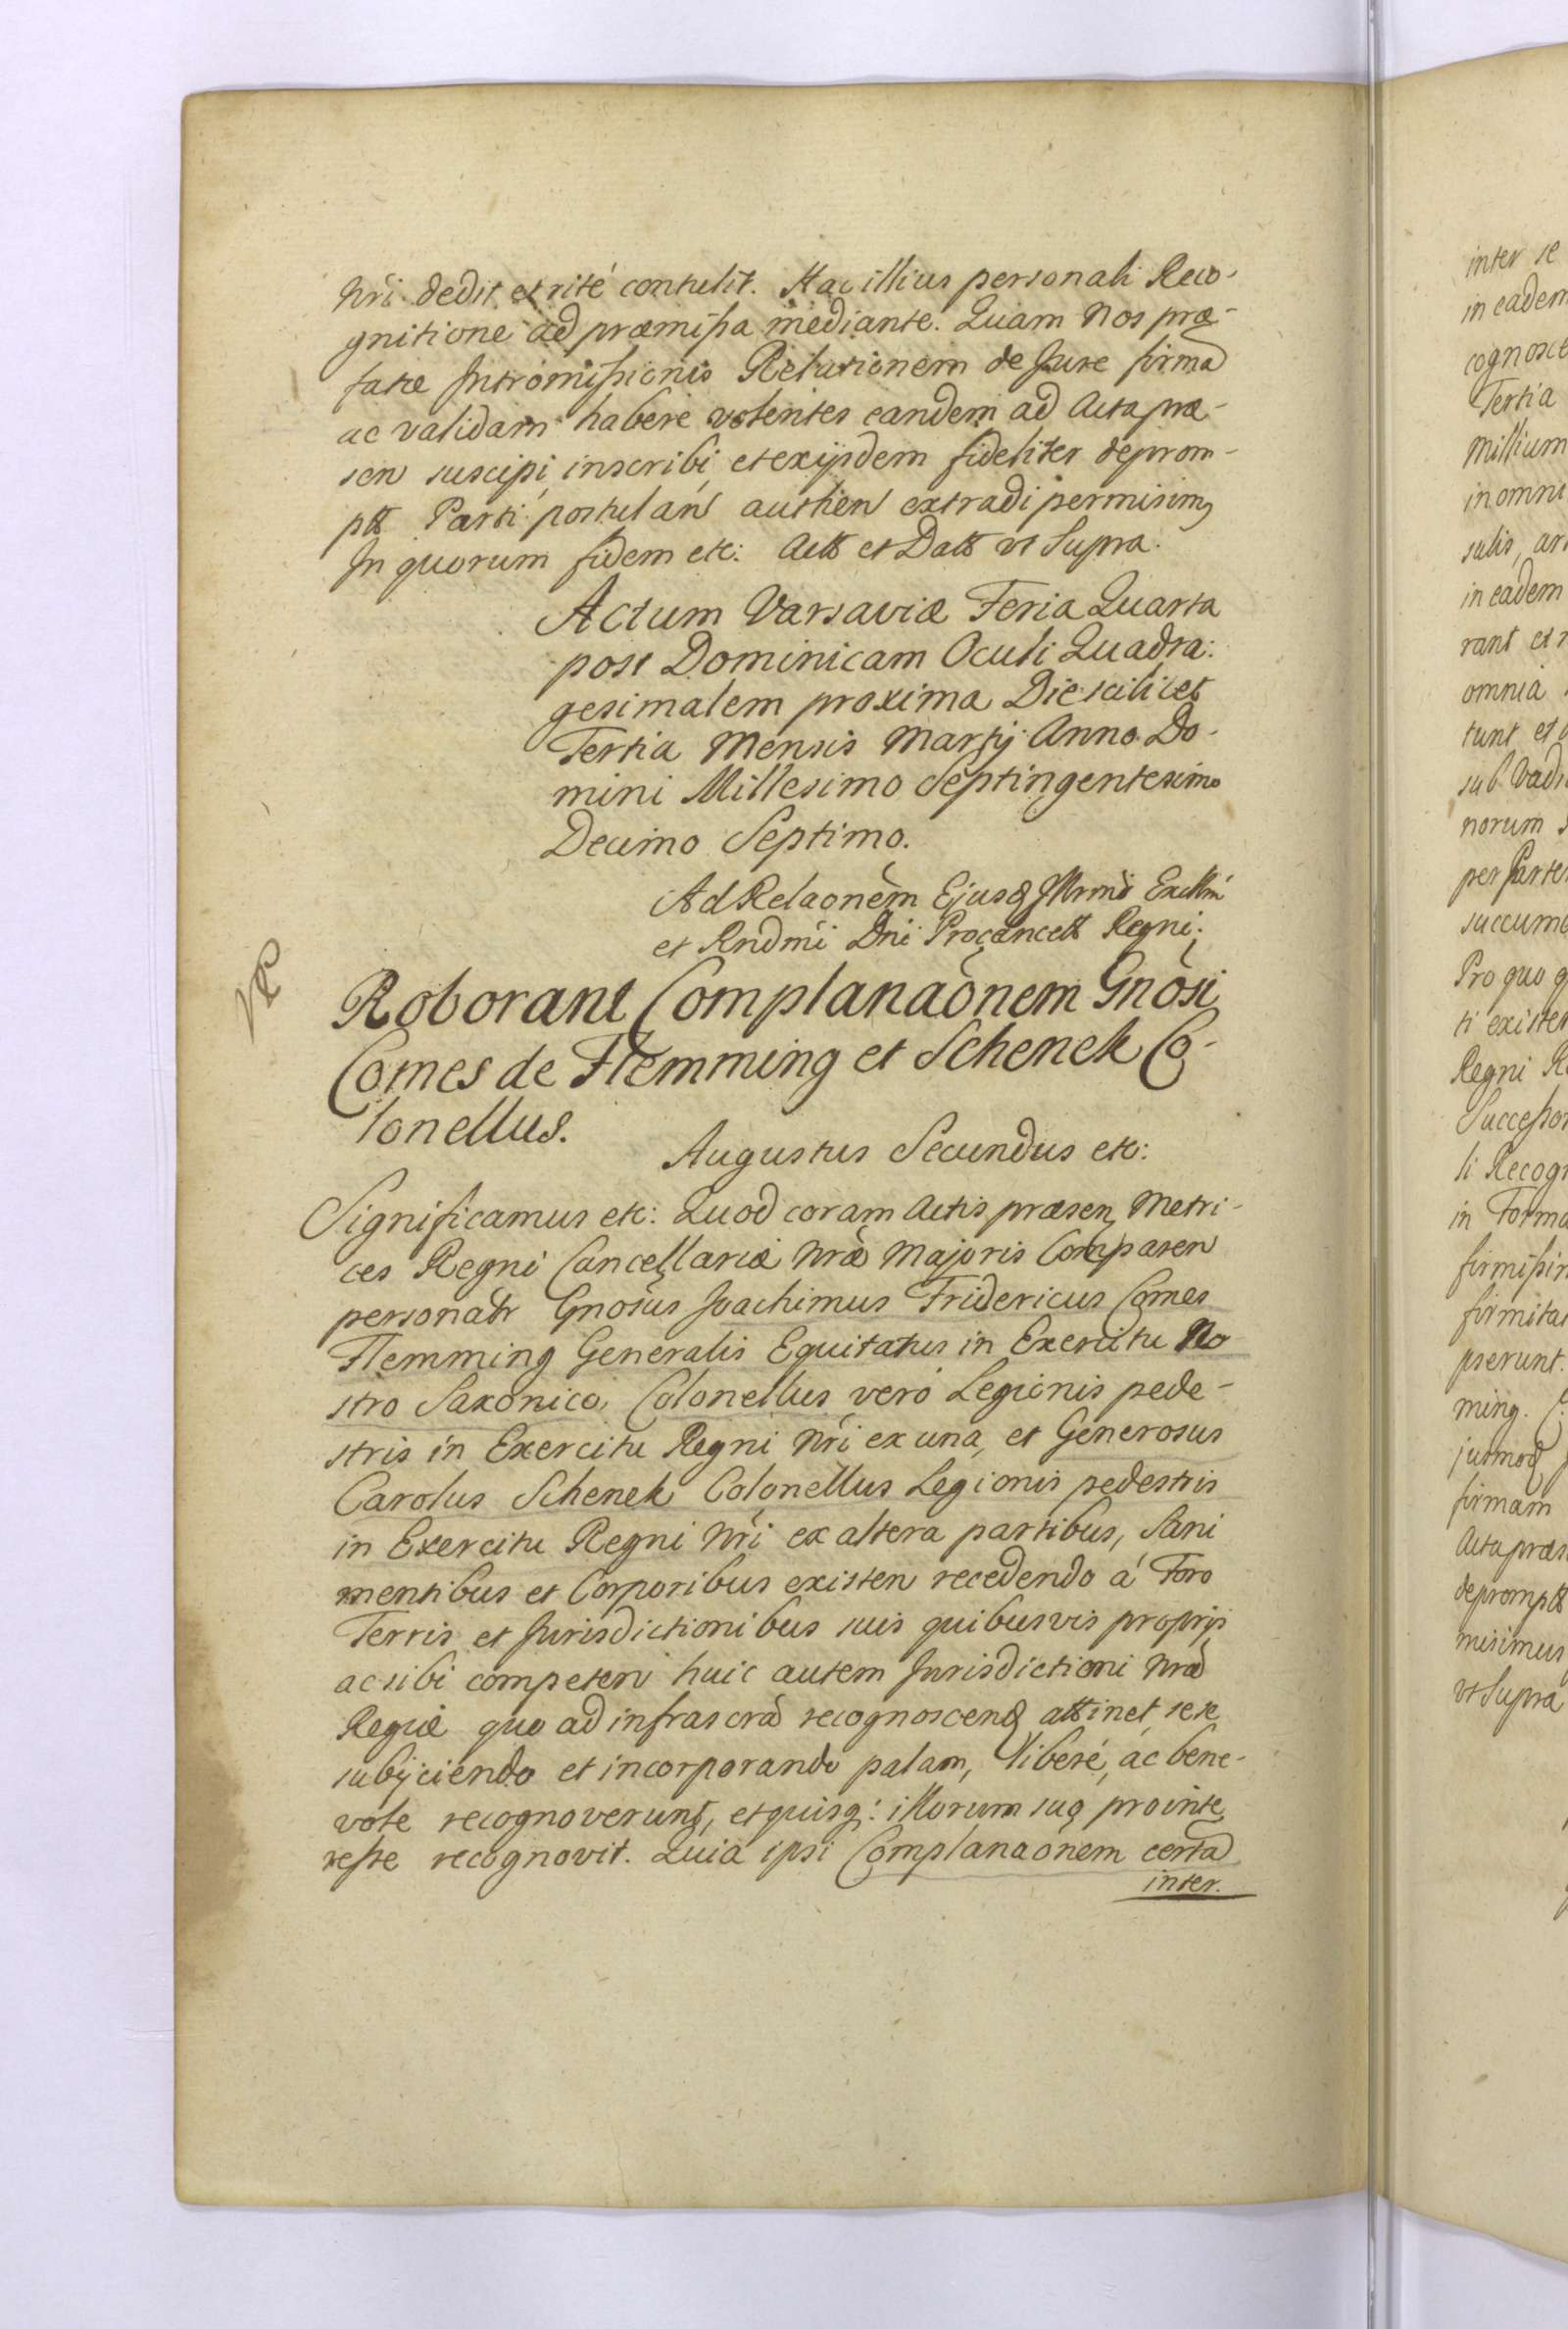 Nr̃i dedit et rité contulit. Hac illius personali Reco-
gnitione ad præmissa mediante. Quam Nos præ-
fatæ Intromissionis Relationem de Jure firmã
ac validam habere volentes eandem ad Acta præ-
sen suscipi, inscribi, et exijsdem fideliter deprom-
ptã Parti postulan authen extradi permisimq
In quorum fidem etc: Actt et Datt vt Supra.
Actum Varsaviæ Feria Quarta
post Dominicam Oculi Quadra:
gesimalem proxima Die scilicet
Tertia Mensis Martij Anno Do-
mini Millesimo Septingentesimo
Decimo Septimo.
Ad Relaõnem Ejusd Illrmi Excllmi
et Rndmi Dni Procancell Regni.
Roborant Complanaõnem Gnõsi
Comes de Flemming et Schenek Co-
lonellus.
Augustus Secundus etc:
Significamus etc: Quod coram Actis præsen Metri-
ces Regni Cancellariæ Nræ Majoris Comparen
personalr Gnosus Joachimus Fridericus Comes
Flemming Generalis Equitatus in Exercitu No
stro Saxonico, Colonellus veró Legionis pede-
stris in Exercitu Regni Nri ex una, et Generosus
Carolus Schenek Colonellus Legionis pedestris
in Exercitu Regni Nri ex altera partibus, Sani
mentibus et Corporibus existen recedendo á Foro
Terris et Jurisdictionibus suis quibusvis proprijs
ac sibi competen huic autem Jurisdictioni Nræ
Regiæ quo ad infrascrã recognoscend attinet, sese
subijciendo et incorporando palam, liberé, ác bene-
vole recognoverunt, et quisq: illorum suo pro inte
resse recognovit. Quia ipsi Complanaõnem certã
inter.
inter se
in eadem
Tertia
Millium
salis, ar
in eadem
rant et r
omnia
tunt et
norum
per Parte
Pro quo q
ti existen
Regni R
Successor
li Recogn
in Forma
firmitat
pserunt.
ming.
firmam
Acta præs
misimus
vt Supra